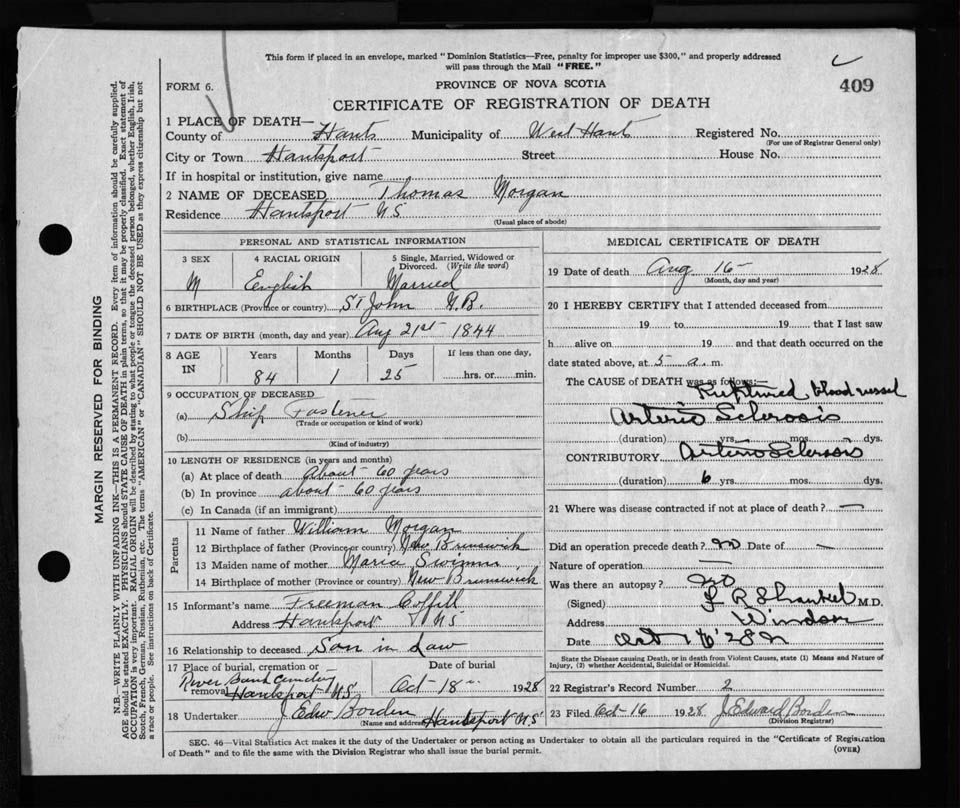 This form if placed in an envelope, marked "Dominion Statistics—Free, penalty for improper use $300," and properly addressed
will pass through the Mail "FREE."
FORM 6.
PROVINCE OF NOVA SCOTIA
409
CERTIFICATE OF REGISTRATION OF DEATH
1 PLACE OF DEATH—
County of Hants Municipality of West Hants Registered No.
(For use of Registrar General only)
City or Town Hantsport Street House No.
If in hospital or institution, give name
2 NAME OF DECEASED Thomas Morgan
Residence Hantsport NS
(Usual place of abode)
PERSONAL AND STATISTICAL INFORMATION
3 SEX 4 RACIAL ORIGIN 5 Single, Married, Widowed or
Divorced. (Write the word)
M English Married
6 BIRTHPLACE (Province or country) St John N.B.
7 DATE OF BIRTH (month, day and year) Aug 21st 1844
8 AGE IN Years Months Days If less than one day,
84 1 25 hrs. or min.
9 OCCUPATION OF DECEASED
(a) Ship Fastener
(Trade or occupation or kind of work)
(b)
(Kind of industry)
10 LENGTH OF RESIDENCE (in years and months)
(a) At place of death About 60 years
(b) In province about 60 years
(c) In Canada (if an immigrant)
Parents
11 Name of father William Morgan
12 Birthplace of father (Province or country) New Brunswick
13 Maiden name of mother Maria
14 Birthplace of mother (Province or country) New Brunswick
15 Informant's name Freeman Coffill
Address Hantsport NS
16 Relationship to deceased Son in Law
17 Place of burial, cremation or Date of burial
River Bank Cemetery
removal Hantsport N.S. Oct 18 1928
18 Undertaker J Edw Borden Hantsport N.S
(Name and address)
MEDICAL CERTIFICATE OF DEATH
19 Date of death Aug 16 1928
(Month, day and year)
20 I HEREBY CERTIFY that I attended deceased from
19 to 19 that I last saw
h alive on 19 and that death occurred on the
date stated above, at 5 a. m.
The CAUSE of DEATH was as follows:—
Ruptured blood vessel
Arterio Sclerosis
(duration) yrs. mos. dys.
CONTRIBUTORY Arterio Sclerosis
(duration) 6 yrs. mos. dys.
21 Where was disease contracted if not at place of death? —
Did an operation precede death? no Date of —
Nature of operation —
Was there an autopsy? no
(Signed) M.D.
Address Windsor
Date Oct 16 '28
State the Disease causing Death, or in death from Violent Causes, state (1) Means and Nature of
Injury, (2) whether Accidental, Suicidal or Homicidal.
22 Registrar's Record Number 2
23 Filed Oct 16 1928 J. Edward Borden
(Division Registrar)
SEC. 46—Vital Statistics Act makes it the duty of the Undertaker or person acting as Undertaker to obtain all the particulars required in the "Certificate of Registration
of Death" and to file the same with the Division Registrar who shall issue the burial permit.
(OVER)
MARGIN RESERVED FOR BINDING
N.B.—WRITE PLAINLY WITH UNFADING INK—THIS IS A PERMANENT RECORD. Every item of information should be carefully supplied.
AGE should be stated EXACTLY. PHYSICIANS should STATE CAUSE OF DEATH in plain terms, so that it may be properly classified. Exact statement of
OCCUPATION is very important. RACIAL ORIGIN will be described by stating to what people or tongue the deceased person belonged, whether English, Irish,
Scotch, French, German, Russian, Ruthenian, etc. The terms "AMERICAN" or "CANADIAN" SHOULD NOT BE USED as they express citizenship but not
a race or people. See instructions on back of Certificate.